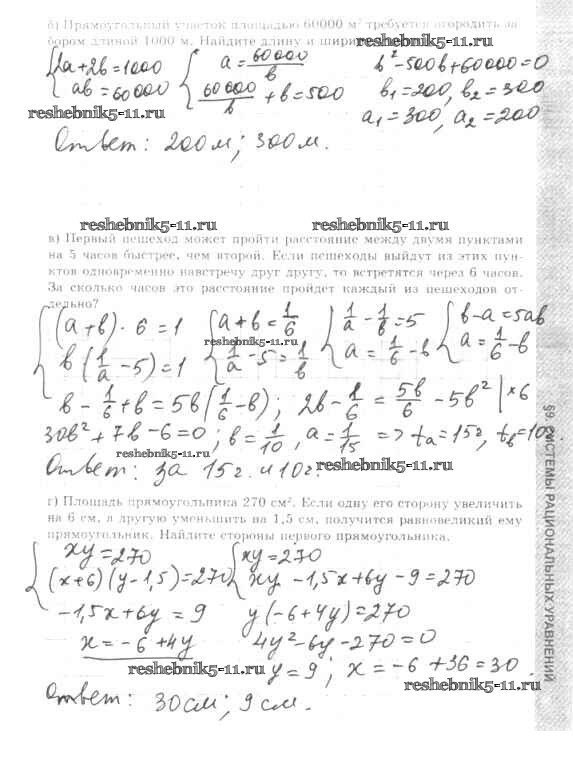 б) Прямоугольный участок площадью 60000 м² требуется огородить за-
бором длиной 1000 м. Найдите длину и шири
{2a+2b=1000 {a=60000/b b²-500b+60000=0
ab=60000 60000/b+b=500 b₁=200, b₂=300
reshebnik5-11.ru a₁=300, a₂=200
reshebnik5-11.ru
Ответ: 200м; 300м.
reshebnik5-11.ru reshebnik5-11.ru
в) Первый пешеход может пройти расстояние между двумя пунктами
на 5 часов быстрее, чем второй. Если пешеходы выйдут из этих пун-
ктов одновременно навстречу друг другу, то встретятся через 6 часов.
За сколько часов это расстояние пройдет каждый из пешеходов от-
дельно?
{(a+b)·6=1 {a+b=1/6 {1/a-1/b=5 {b-a=5ab
b(1/a-5)=1 1/a-5=1/b a=1/6-b a=1/6-b
reshebnik5-11.ru
b-1/6+b=5b(1/6-b); 2b-1/6=5b/6-5b² |×6
30b²+7b-6=0; b=1/10, a=1/15 => tₐ=15г, t_b=10г.
reshebnik5-11.ru
Ответ: за 15г. и 10г.
г) Площадь прямоугольника 270 см². Если одну его сторону увеличить
на 6 см, а другую уменьшить на 1,5 см, получится равновеликий ему
прямоугольник. Найдите стороны первого прямоугольника.
{xy=270 {xy=270
(x+6)(y-1,5)=270 xy-1,5x+6y-9=270
-1,5x+6y=9 y(-6+4y)=270
x=-6+4y 4y²-6y-270=0
reshebnik5-11.ru y=9; x=-6+36=30.
reshebnik5-11.ru
Ответ: 30см; 9см.
§9. СИСТЕМЫ РАЦИОНАЛЬНЫХ УРАВНЕНИЙ